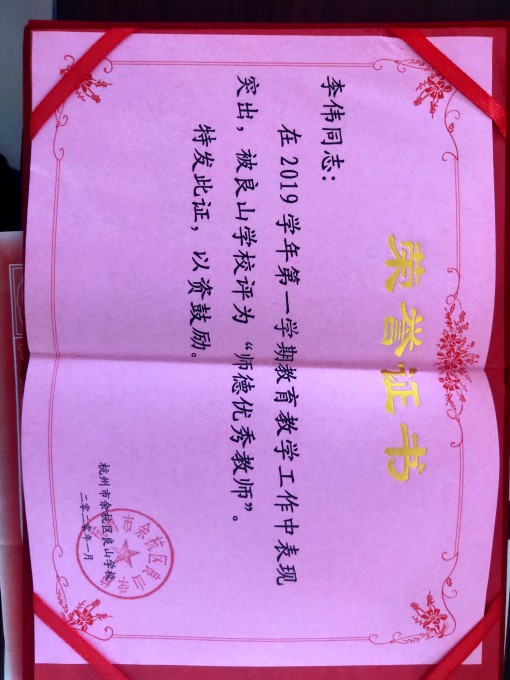 荣誉证书
李伟同志：
在2019学年第一学期教育教学工作中表现
突出，被良山学校评为“师德优秀教师”。
特发此证，以资鼓励。
杭州市余杭区良山学校
二零二零年一月